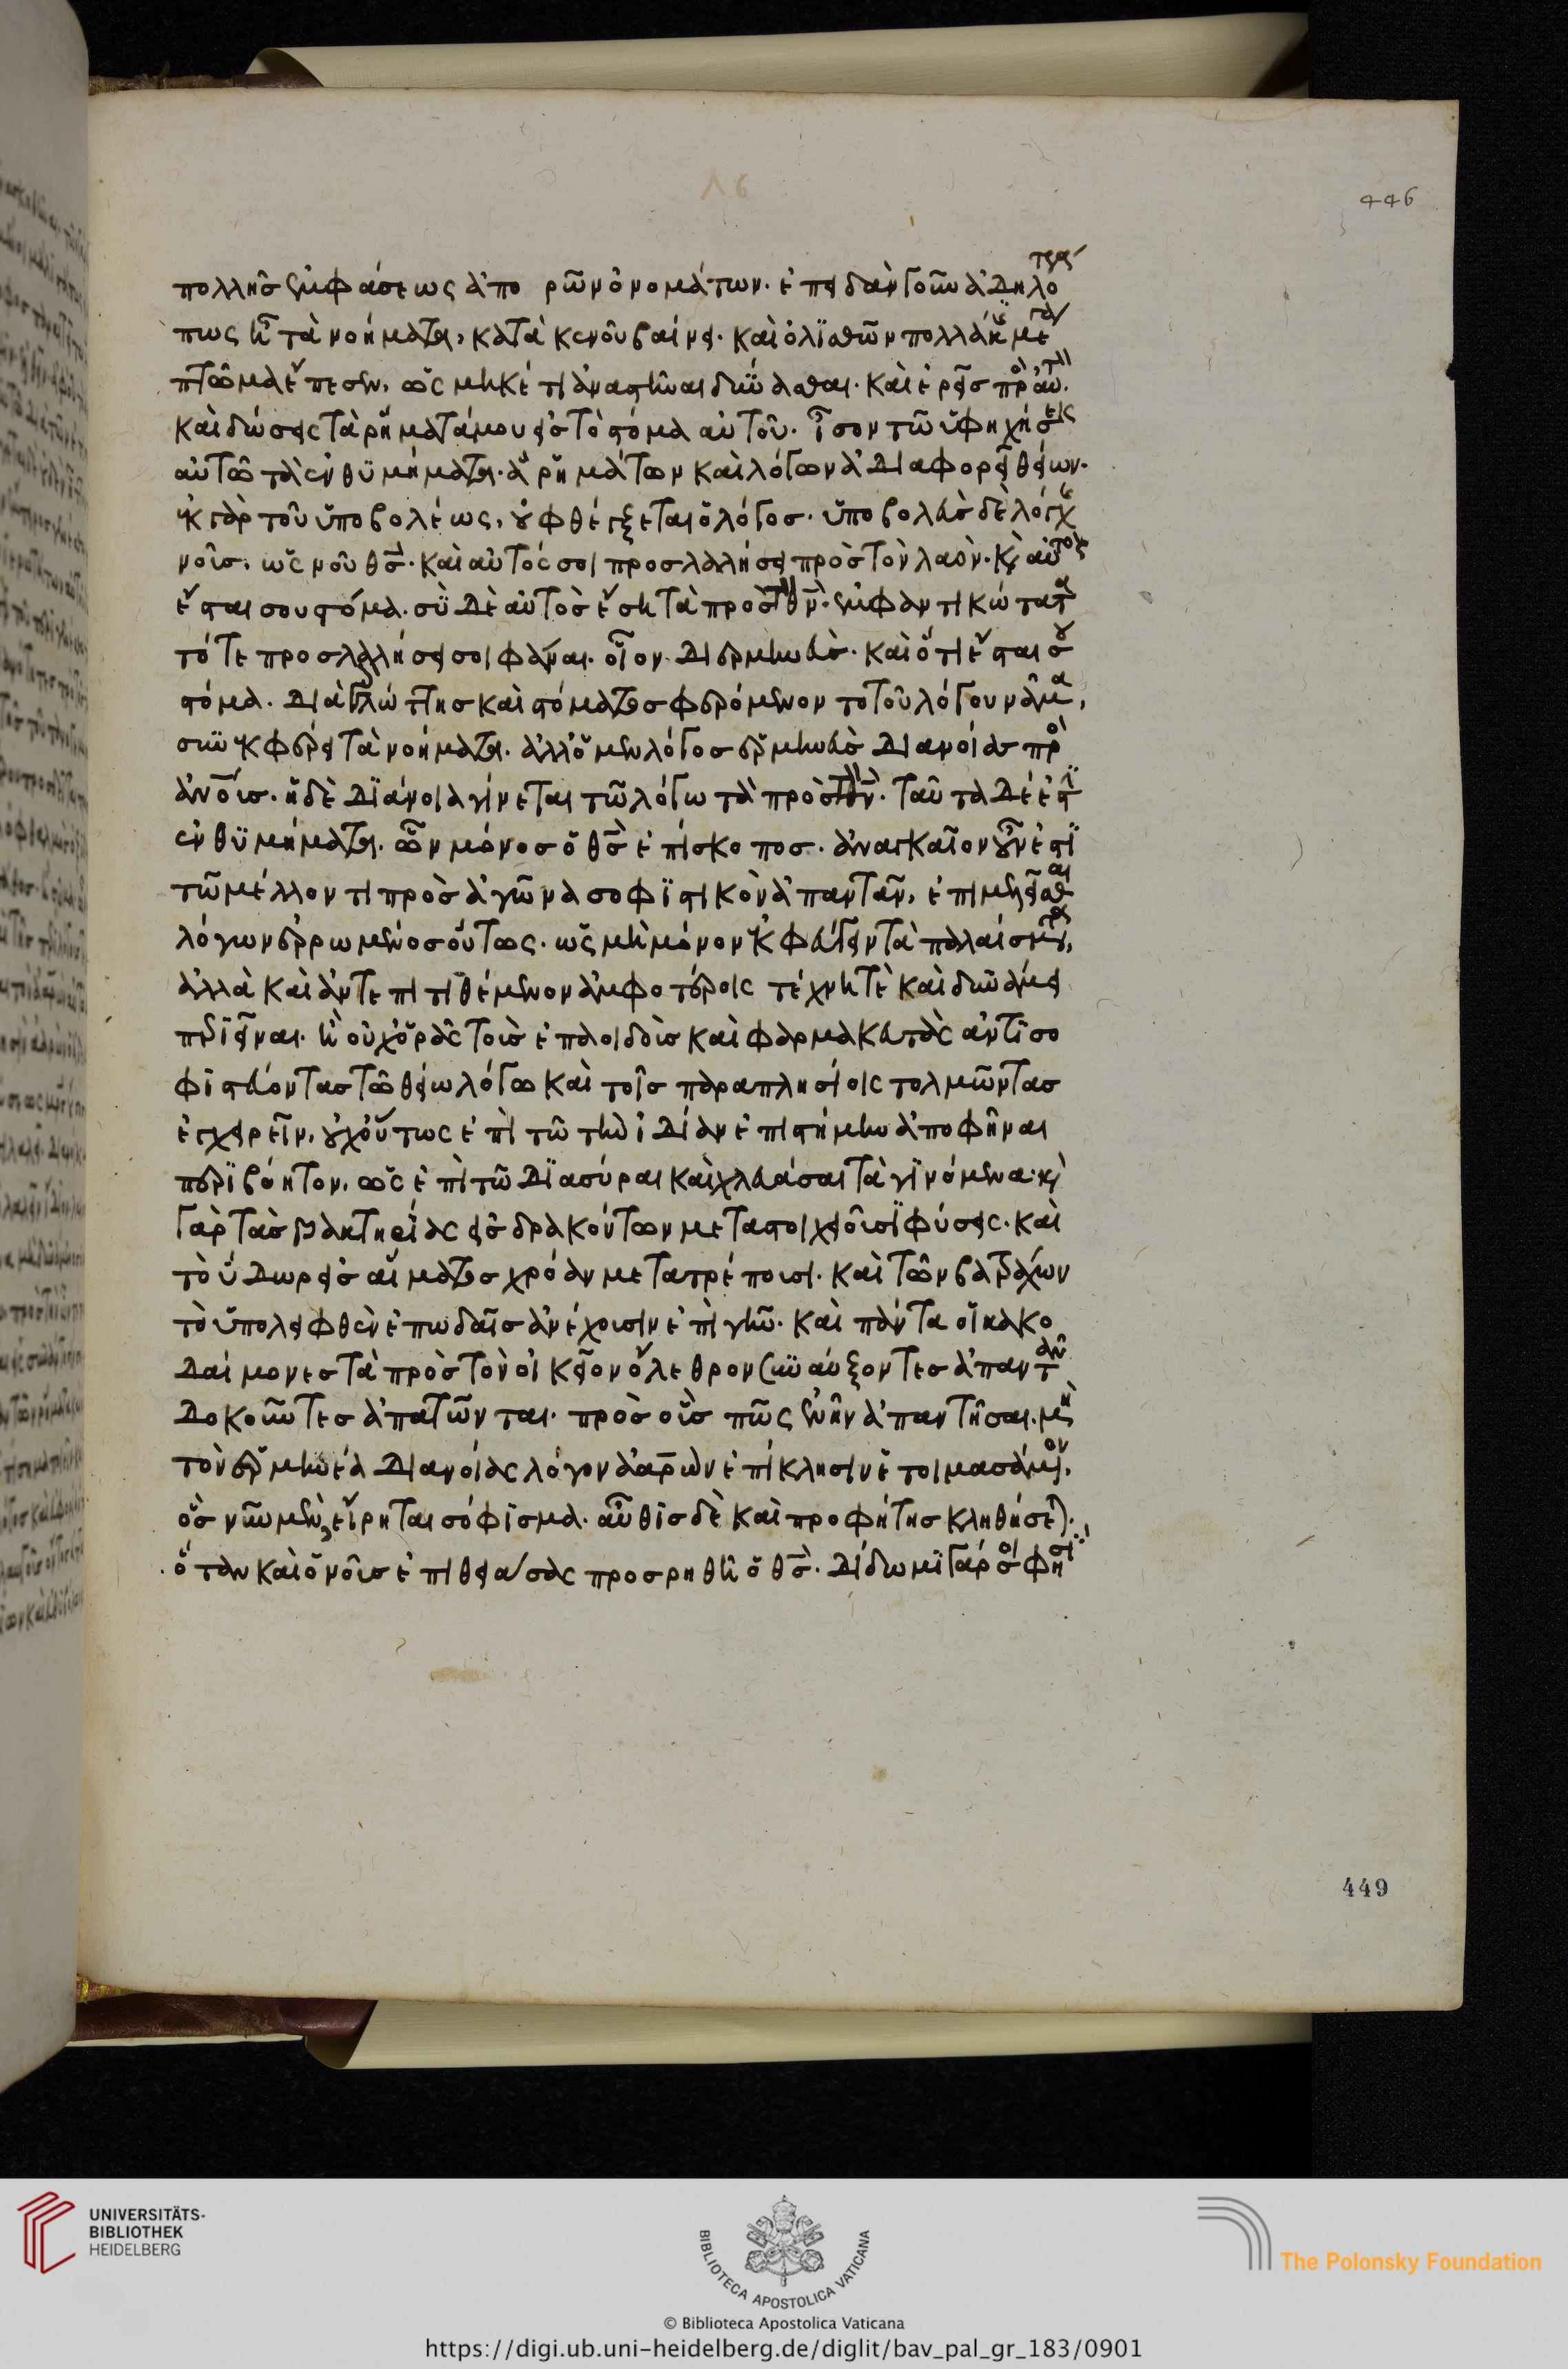 πολλῆς ἐμφάσεως ἀπο ρῶν ὀνομάτων. ἐπειδὰν γοῦν ἀδηλότερα
πως ἦ τὰ νοήματα, κατὰ κενοῦ βαίνει. καὶ ὀλισθῶν πολλάκις μέγα
πτῶμα ἔπεσεν, ὡς μηκέτι ἀναστῆναι δύνασθαι. καὶ ἐρεῖς πρὸς αὐτὸν.
καὶ δώσεις τὰ ῥήματά μου εἰς τὸ στόμα αὐτοῦ. ἴσον τῶ ὑφηχήσεις
αὐτῶ τὰ ἐνθυμήματα. ἃ ῥημάτων καὶ λόγων ἀδιαφορεῖ θείων.
ἐκ γὰρ τοῦ ὑποβολέως, οὐ φθέγξεται ὁ λόγος. ὑποβολεὺς δὲ λόγου
νοῦς, ὡς νοῦ θς. καὶ αὐτός σοι προσλαλήσει πρὸς τὸν λαόν. καὶ αὐτὸς
ἔσται σου στόμα. σὺ δὲ αὐτὸς ἔση τὰ πρὸς τὸν θν. ἐμφαντικώτατα
τό τε προσλαλήσει σοι φάναι. οἷον διερμηνεὺς. καὶ ὅτι ἔσται σου
στόμα. διὰ γλώττης καὶ στόματος φερόμενον τὸ τοῦ λόγου νᾶμα,
συνεκφέρει τὰ νοήματα. ἀλλ' ὁ μὲν λόγος ἑρμηνεὺς διανοίας πρὸς
ἀνοῖς. ἡ δὲ διάνοια γίνεται τῶ λόγω τὰ πρὸς τὸν θν. ταῦτα δέ ἐστι
ἐνθυμήματα. ὧν μόνος ὁ θς ἐπίσκοπος. ἀναγκαῖον οὖν ἐστι
τῶ μέλλοντι πρὸς ἀγῶνα σοφιστικὸν ἀπαντᾶν, ἐπιμελεῖσθαι
λόγων ἐρρωμένος οὕτως. ὡς μὴ μόνον ἐκφεύγειν τὰ παλαίσματα,
ἀλλὰ καὶ ἀντεπιτιθέμενον ἀμφοτέροις τέχνη τὲ καὶ δυνάμει
περιεῖναι. ἢ οὐχ ὁρᾶς τοὺς ἐπαοιδοὺς καὶ φαρμακευτὰς ἀντισο
φιστεύοντας τῶ θείω λόγω καὶ τοῖς παραπλησίοις τολμῶντας
ἐγχειρεῖν, οὐχ οὕτως ἐπὶ τῶ τὴν ἰδίαν ἐπιστήμην ἀποφῆναι
περιβόητον, ὡς ἐπὶ τῶ διασύραι καὶ χλευάσαι τὰ γινόμενα. καὶ
γὰρ τὰς βακτηρίας εἰς δρακόντων μεταστοιχειοῦσι φύσεις. καὶ
τὸ ὕδωρ εἰς αἵματος χρόαν μετατρέπουσι. καὶ τῶν βατράχων
τὸ ὑπολειφθὲν ἐπωδαῖς ἀνέχουσιν ἐπὶ γῆν. καὶ πάντα οἱ κακο
δαίμονες τὰ πρὸς τὸν οἰκεῖον ὄλεθρον συναύξοντες ἀπαντᾶν
δοκοῦντες ἀπατῶνται. πρὸς οὓς πῶς ἐνῆν ἀπαντῆσαι. μὴ
τὸν ἑρμηνέα διανοίας λόγον ἀαρὼν ἐπίκλησιν ἑτοιμασάμενον.
ὃς νῦν μὲν εἴρηται σόφισμα. αὖθις δὲ καὶ προφήτης κληθήσεται.
ὅταν καὶ ὁ νοῦς ἐπιθειάσας προσρηθῆ ὁ θς. δίδωμι γάρ σε φησὶ
446
449
UNIVERSITÄTS-
BIBLIOTHEK
HEIDELBERG
BIBLIOTECA APOSTOLICA VATICANA
The Polonsky Foundation
© Biblioteca Apostolica Vaticana
https://digi.ub.uni-heidelberg.de/diglit/bav_pal_gr_183/0901